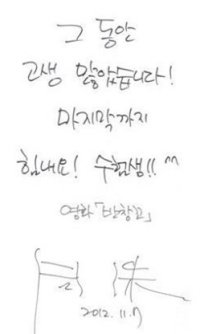 그 동안
고생 많았습니다!
마지막까지
힘내요! 수험생!! ^^
영화「반창꼬」
2012. 11. 7